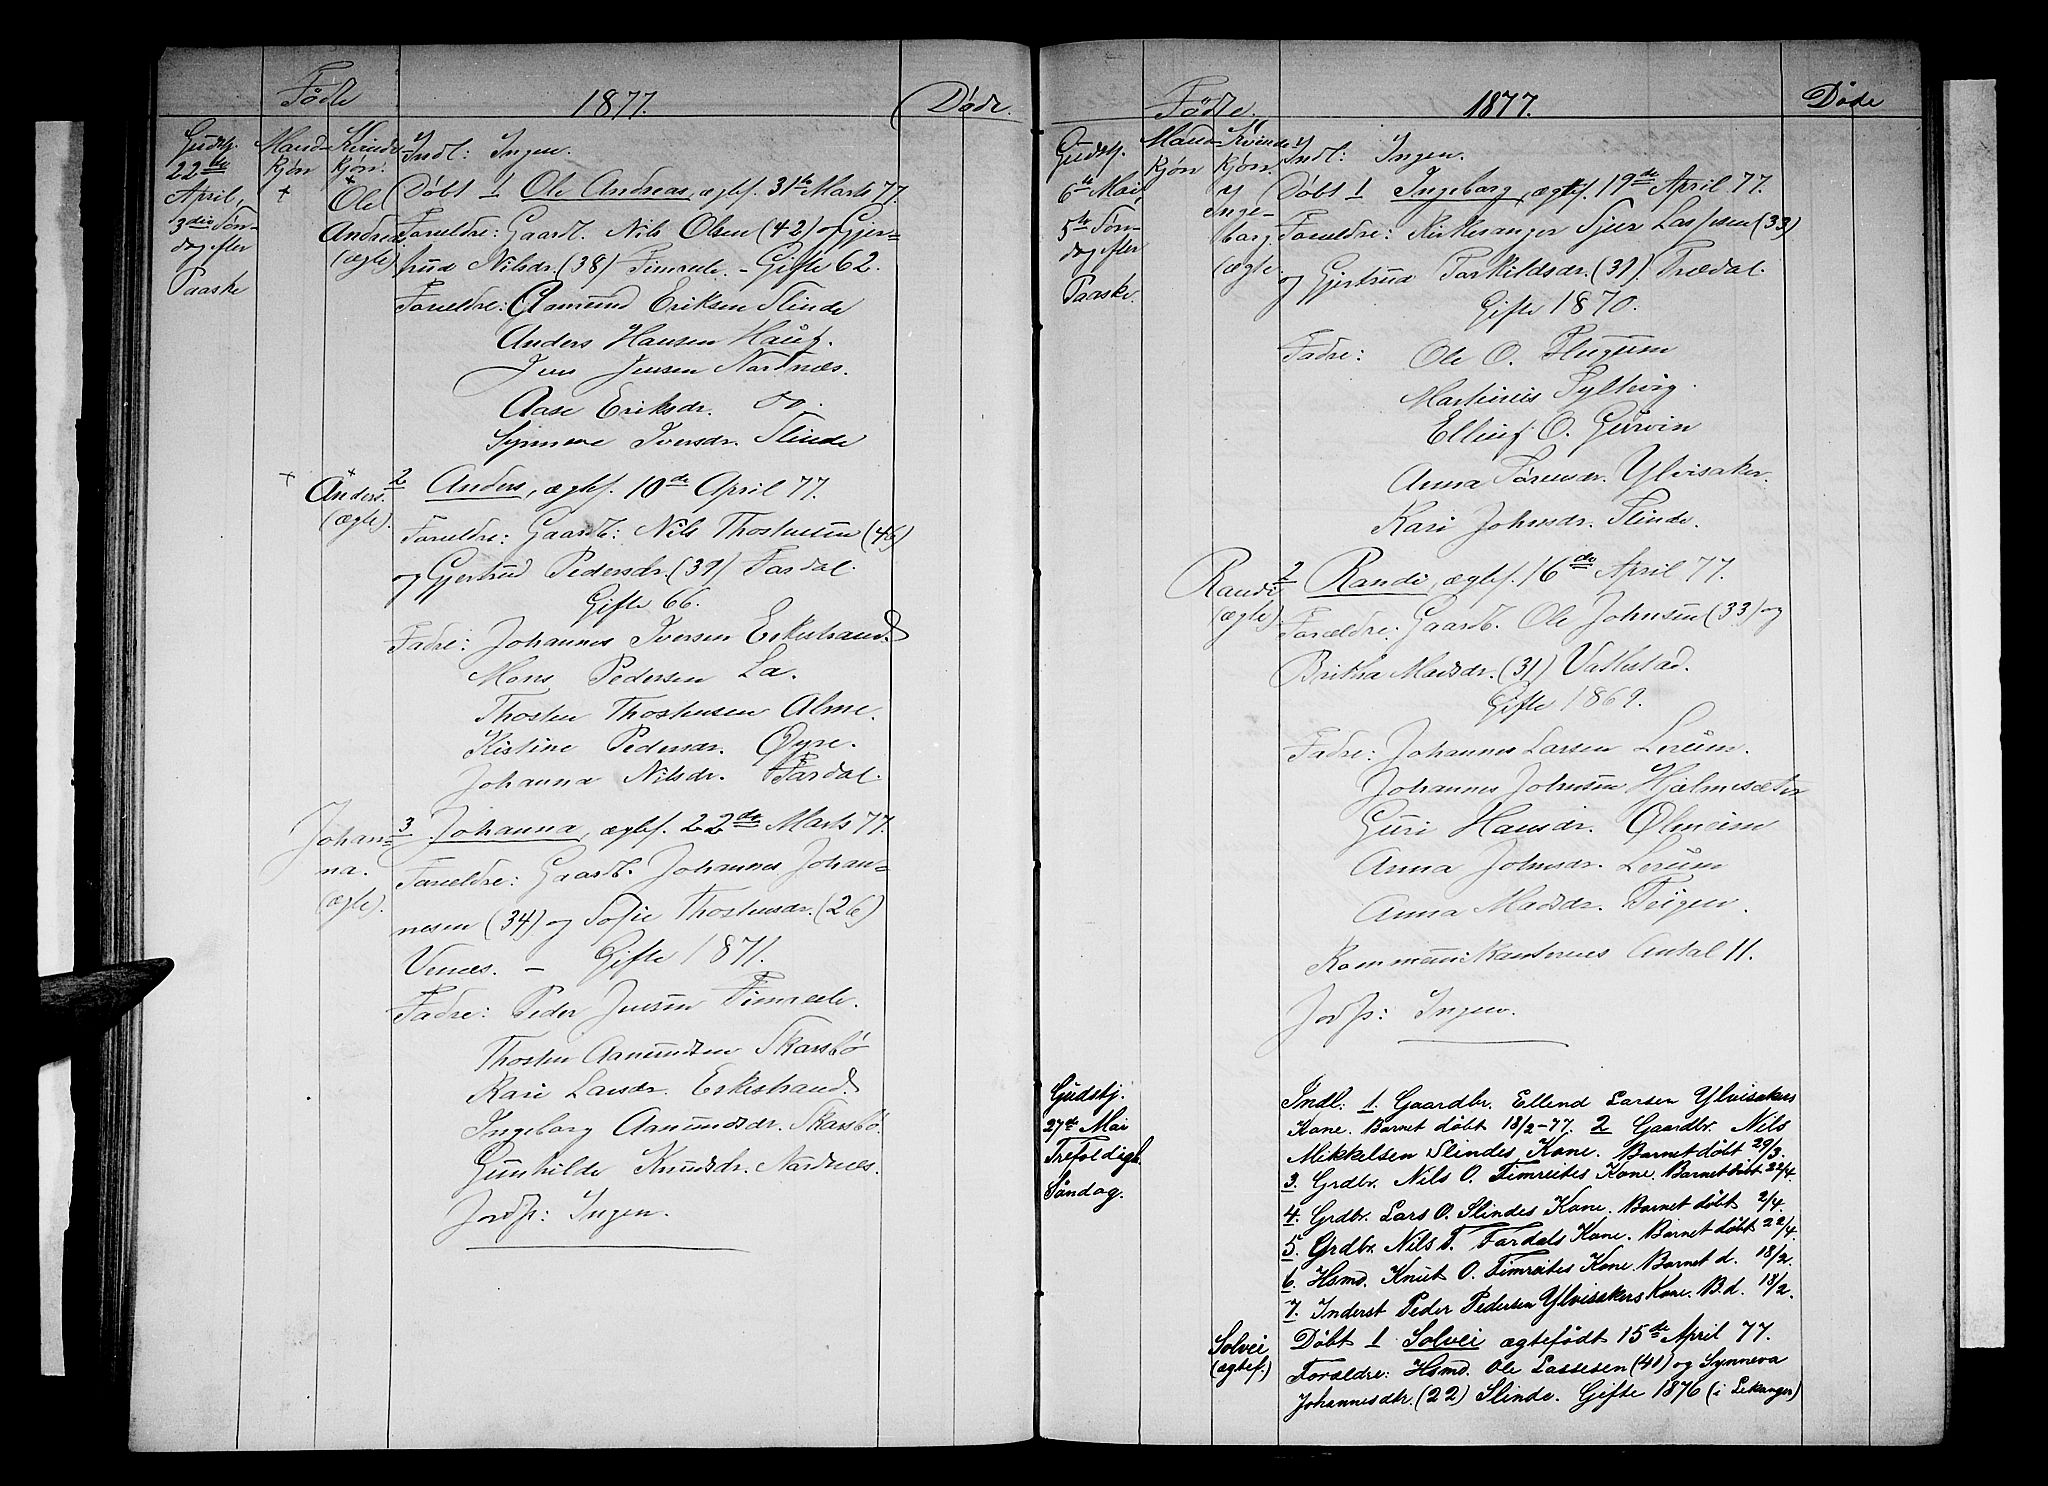 Fødte
1877.
Døde.
Gudstj.
22de
April,
3die Søn-
dag efter
Paaske
Mand-
kjøn
Kvinde-
kjøn.
+
+
Ole
Andreas
(ægte)
Indl: Ingen.
Døbt 1 Ole Andreas, ægtef. 31te Marts 77.
Forældre: Gaardb. Nils Olsen (42) og Gjer-
trud Nilsdr. (38) Timreite. - Gifte 62.
Forældre: Aamund Eriksen Slinde
Anders Hansen Haug.
Iver Jensen Nordnæs.
Aase Eriksdr. do.
Synneve Iversdr. Slinde
+
+
Anders.
(ægte).
2 Anders, ægtef. 10de April 77.
Forældre: Gaardb: Nils Thostensen (46)
og Gjertrud Pedersdr. (39) Fardal.
Gifte 66.
Fadre: Johannes Iversen Eskestrand.
Mons Pedersen La.
Thosten Thostensen Alme.
Kistine Pedersdr. Øyre.
Johanna Nilsdr. Fardal.
Johan-
na.
(ægte).
3 Johanna, ægtef. 22de Marts 77.
Forældre: Gaardb. Johannes Johan-
nesen (34) og Sofie Thostensdr. (26)
Venæs. - Gifte 1871.
Fadre: Peder Jensen Timreite.
Thosten Aamundsen Skarsbø
Kari Larsdr. Eskestrand
Ingeborg Aamundsdr. Skarsbø.
Gunhilde Knudsdr. Nordnæs.
Jordf: Ingen.
Fødte.
1877.
Døde
Gudstj.
6te Mai,
5te Søn-
dag efter
Paaske.
Mand-
kjøn
Kvinde-
kjøn.
Inge-
borg
(ægte.
Indl: Ingen.
Døbt 1 Ingeborg, ægtef. 19de April 77.
Forældre: Kirkesanger Sjur Lassesen (33)
og Gjertrud Torkildsdr. (31) Trædal.
Gifte 1870.
Fadre: Ole O. Flugum
Martinus Sylling.
Elling O. Gurvin
Anna Sørensdr. Ylvisaker.
Kari Johnsdr. Slinde.
Randi
(ægte)
2 Randi, ægtef. 16de April 77.
Forældre: Gaardb. Ole Johnsen (33) og
Brikta Madsdr. (31) Vallestad.
Gifte 1869.
Fadre: Johannes Larsen Lerum.
Johannes Johnsen Hjelmesæter
Guri Hansdr. Ølmeim
Anna Johnsdr. Lerum
Anna Madsdr. Teigen.
Kommunikanternes Antal 11.
Jordf: Ingen.
Gudstj.
27de Mai
Trefoldigh.
Søndag.
Indl: 1. Gaardbr. Ellend Larsen Ylvisakers
Kone. Barnet døbt 18/2-77. 2 Gaardbr. Nils
Mikkelsen Slindes Kone. Barnet døbt 29/3.
3. Grdbr. Nils O. Timreites Kone. Barnet døbt 22/4.
4. Grdbr. Lars O. Slindes Kone. Barnet døbt 2/4.
5. Grdbr. Nils T. Fardals Kone. Barnet døbt 22/4.
6. Hsmd. Knut O. Timreites Kone. Barnet d. 18/2.
7. Inderst Peder Pedersen Ylvisakers Kone. B. d. 18/2.
Solvei
(ægtef.)
Døbt 1 Solvei ægtefødt 15de April 77.
Forældre: Hsmd. Ole Lassesen (41) og Synneva
Johannesdtr. (22) Slinde. Gifte 1876 (i Lekanger)